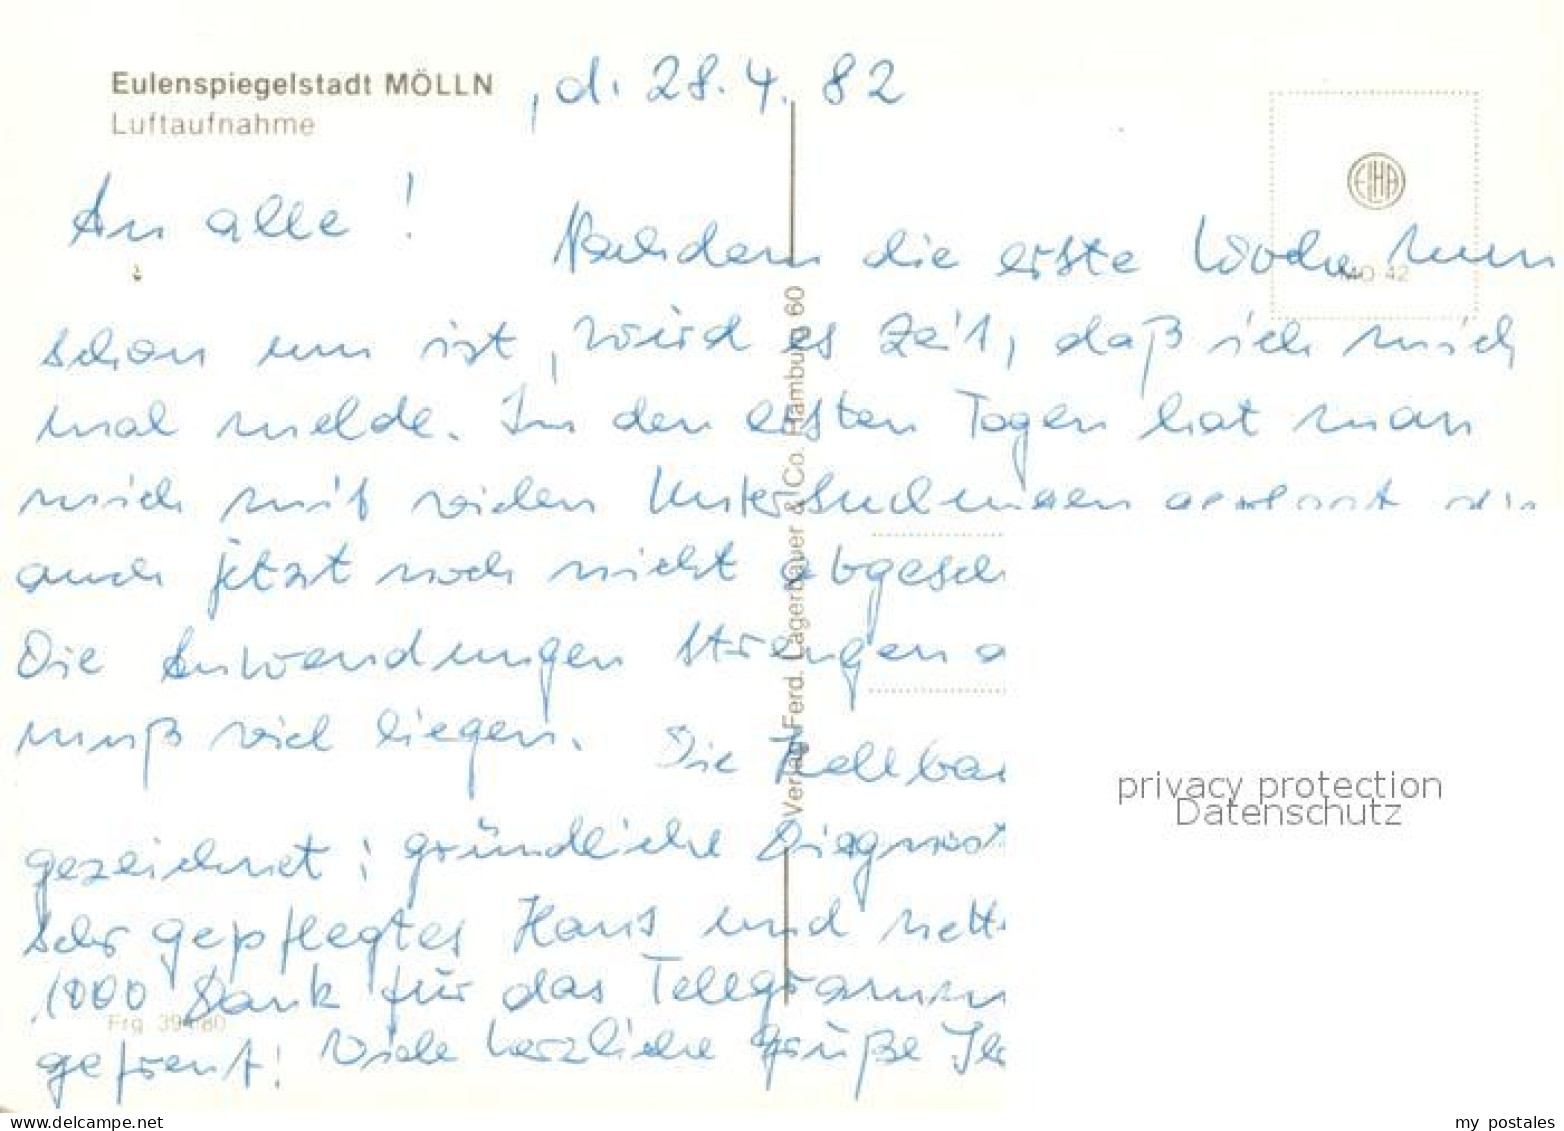 Eulenspiegelstadt MÖLLN , d. 28.4.82
Luftaufnahme
ELHA
MO 42
An alle!
Nachdem die erste Woche nun
schon um ist, wird es Zeit, daß ich mich
mal melde. In den ersten Tagen hat man
mich mit vielen Untersuchungen geplagt, die
auch jetzt noch nicht abgesch
Die Anwendungen strengen a
muß viel liegen. Die Hellbac
gezeichnet: gründliche Diagnost
sehr gepflegtes Haus und nett
1000 Dank für das Telegramm
gefreut! Viele herzliche Grüße
Frg. 394/80
Verlag Ferd. Lagerbauer & Co. Hamburg 60
privacy protection
Datenschutz
my postales